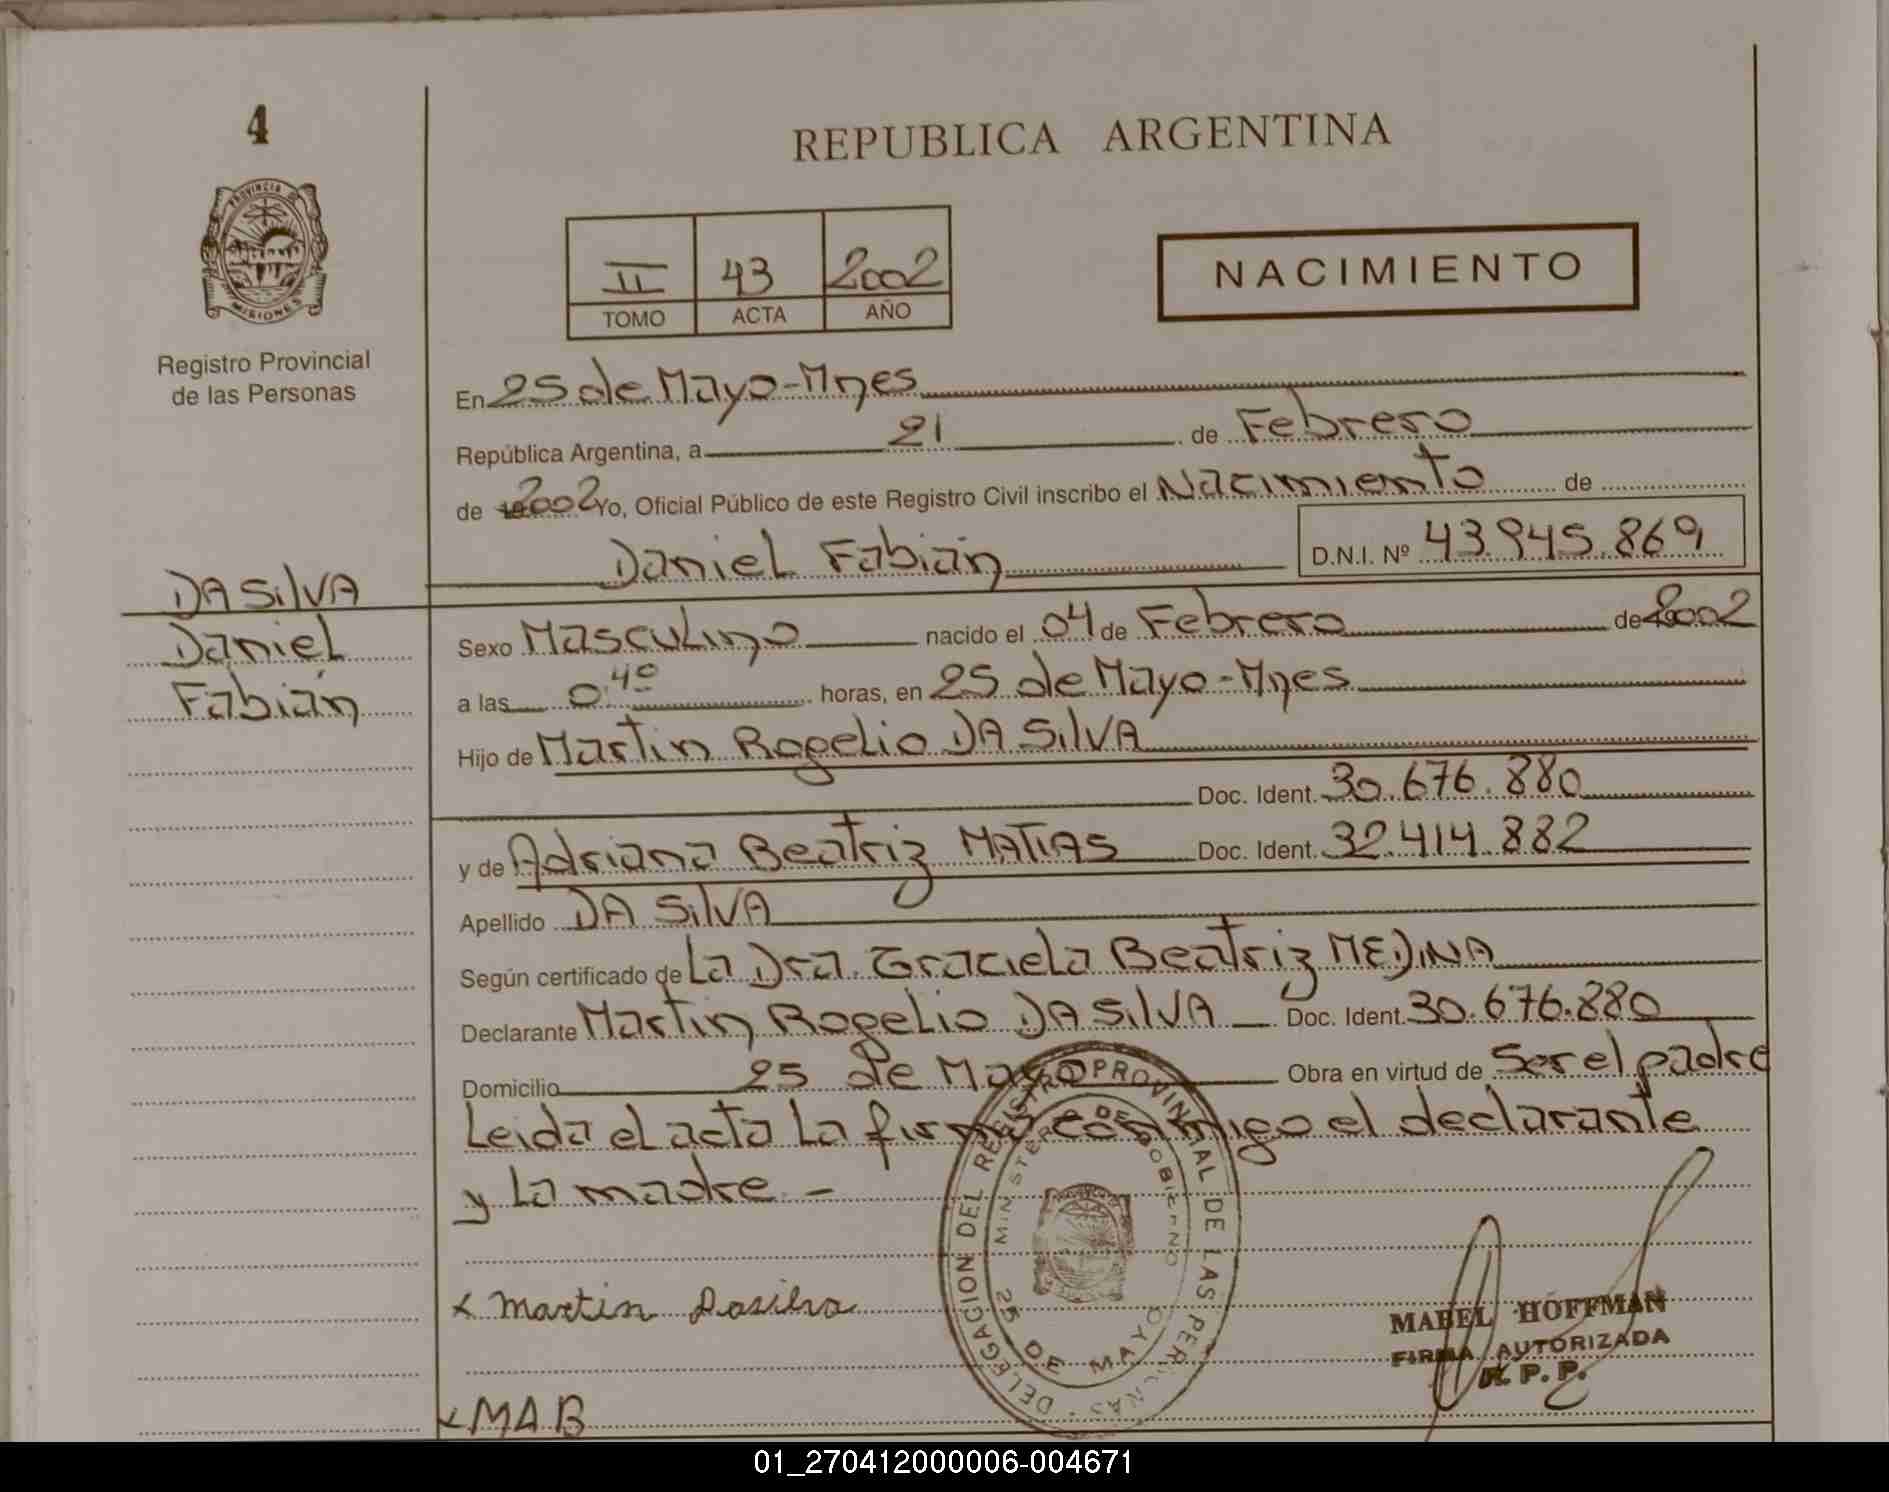 4
PROVINCIA DE
MISIONES
Registro Provincial
de las Personas
REPUBLICA ARGENTINA
II 43 2002
TOMO ACTA AÑO
NACIMIENTO
En 25 de Mayo-Mnes
República Argentina, a 21 de Febrero
de 2002 Yo, Oficial Público de este Registro Civil inscribo el Nacimiento de
Daniel Fabián D.N.I. Nº 43.945.869
DA SilVA
Daniel
Fabián
Sexo Masculino nacido el 04 de Febrero de 2002
a las 0.40 horas, en 25 de Mayo-Mnes
Hijo de Martin Rogelio DA SilVA
Doc. Ident. 30.676.880
y de Adriana Beatriz MATIAS Doc. Ident. 32.414.882
Apellido DA SilVA
Según certificado de La Dra. Graciela Beatriz MEDINA
Declarante Martin Rogelio DA SilVA Doc. Ident. 30.676.880
Domicilio 25 de Mayo Obra en virtud de Ser el padre
Leida el acta la firma conmigo el declarante
y la madre -
DELEGACION DEL REGISTRO PROVINCIAL DE LAS PERSONAS
MINISTERIO DE GOBIERNO
25 DE MAYO
x Martin Dasilva
MABEL HOFFMAN
FIRMA AUTORIZADA
R. P. P.
x MAB
01_270412000006-004671